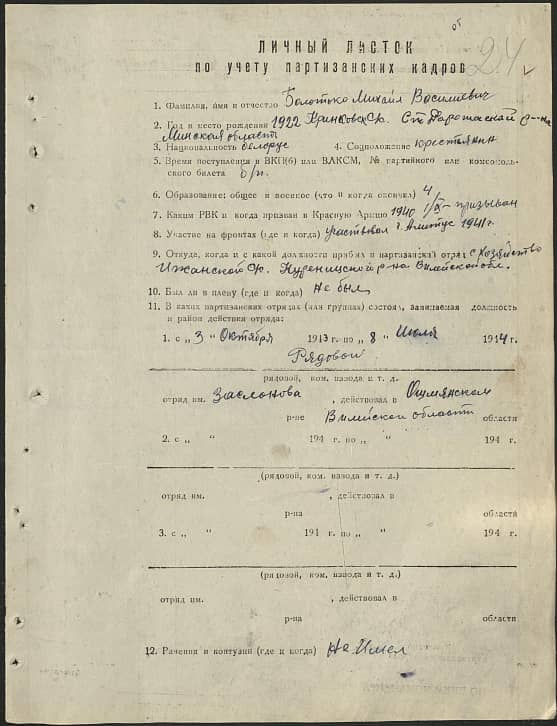 об
24
ЛИЧНЫЙ ЛИСТОК
по учету партизанских кадров
1. Фамилия, имя и отчество Болотько Михаил Васильевич
2. Год и место рождения 1922 Кринковск с/с. Ст. Дарожской р-на
Минской области
3. Национальность белорус 4. Соцположение крестьянин
5. Время поступления в ВКП(б) или ВЛКСМ, № партийного или комсомоль-
ского билета б/п.
6. Образование: общее и военное (что и когда окончил) 4
7. Каким РВК и когда призван в Красную Армию 1940 1/IX- призыван
8. Участие на фронтах (где и когда) участвовал г. Алитус 1941г.
9. Откуда, когда и с какой должности прибыл в партизанский отряд с хозяйство
Ижанской с/с. Куреницкой р-на Вилейской обл.
10. Был ли в плену (где и когда) Не был
11. В каких партизанских отрядах (или группах) состоял, занимаемая должность
и район действия отряда:
1. с „ 3 " Октября 1943 г. по „ 8 " Июля 1944 г.
Рядовой
(рядовой, ком. взвода и т. д.)
отряд им. Заслонова , действовал в Ошмянском
р-не Вилейской области области
2. с „ " 194 г. по „ " 194 г.
(рядовой, ком. взвода и т. д.)
отряд им. , действовал в
р-на области
3. с „ " 194 г. по „ " 194 г.
(рядовой, ком. взвода и т. д.)
отряд им. , действовал в
р-на области
12. Ранения и контузии (где и когда) Не Имел